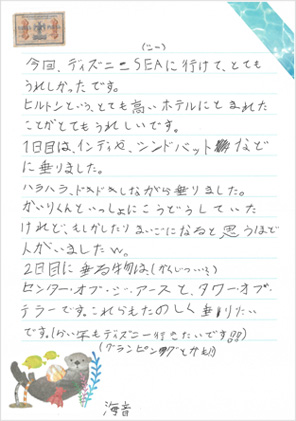 (こう)
今回、ディズニーSEAに行けて、とても
うれしかったです。
ヒルトンという、とても高いホテルにとまれた
ことがとてもうれしいです。
1日目は、インディや、シンドバットなど
に乗りました。
ハラハラ、ドキドキしながら乗りました。
かいりくんといっしょにこうどうしていた
けれど、もしかしたりまいごになると思うほど
人がいましたw。
2日目に乗る物は(かんじつ…)
センター・オブ・ジ・アースと、タワー・オブ・
テラーです。これらもたのしく乗りたい
です。(らい年もディズニー行きたいです!!)
(グランピングとかも!)
海音